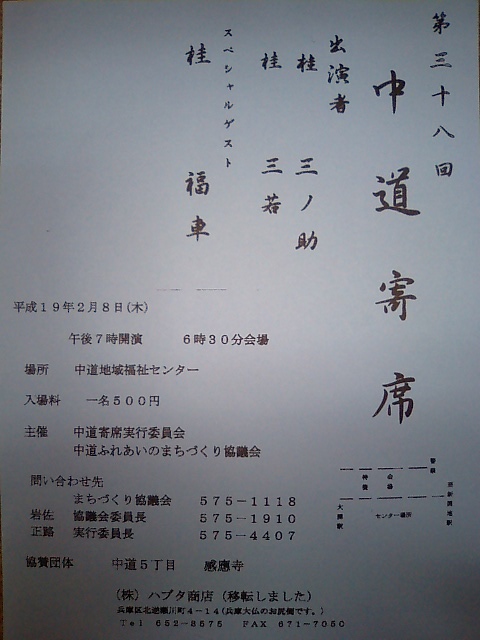 第三十八回
中道寄席
出演者
桂 三ノ助
桂 三若
スペシャルゲスト
桂 福車
平成19年2月8日(木)
午後7時開演 6時30分会場
場所 中道地域福祉センター
入場料 一名500円
主催 中道寄席実行委員会
中道ふれあいのまちづくり協議会
問い合わせ先
まちづくり協議会 575-1118
岩佐 協議会委員長 575-1910
正路 実行委員長 575-4407
協賛団体 中道5丁目 感應寺
センター場所
(株)ハブタ商店(移転しました)
兵庫区北逆瀬川町4-14(兵庫大仏のお尻側です。)
Tel 652-8575 FAX 671-7050